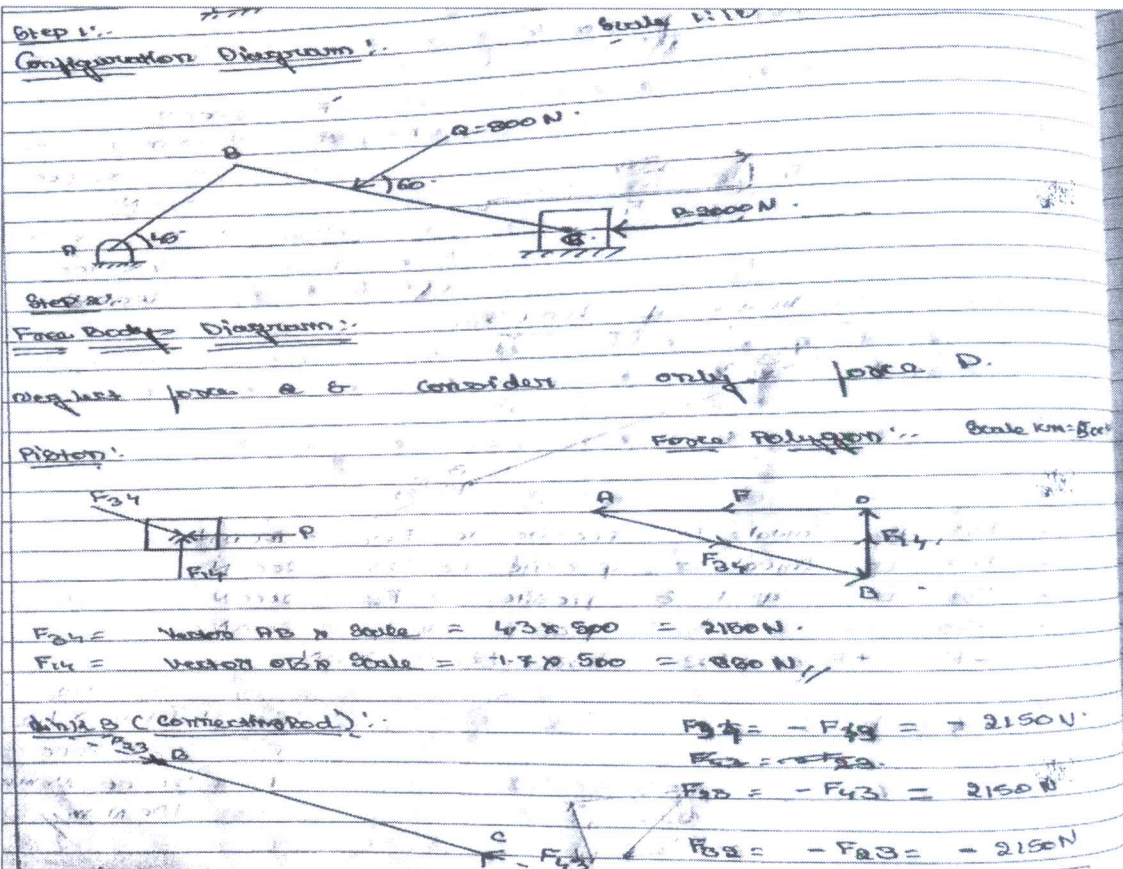 Step 1:-
Configuration Diagram:-
B
Q=800 N.
60
P=2000 N.
A
Step 2:-
Free Body Diagram:-
neglect force Q & Consider only force P.
Piston:-
Force Polygon:-
F34
P
F14
A
P
O
F34
F14
B
F34 = Vector AB × Scale = 4.3 × 500 = 2150 N.
F14 = Vector OB × Scale = 1.7 × 500 = 850 N //
Link 3 (Connecting Rod):-
F34 = - F43 = - 2150 N.
B
F23 = - F43 = 2150 N
C
F43
F32 = - F23 = - 2150 N